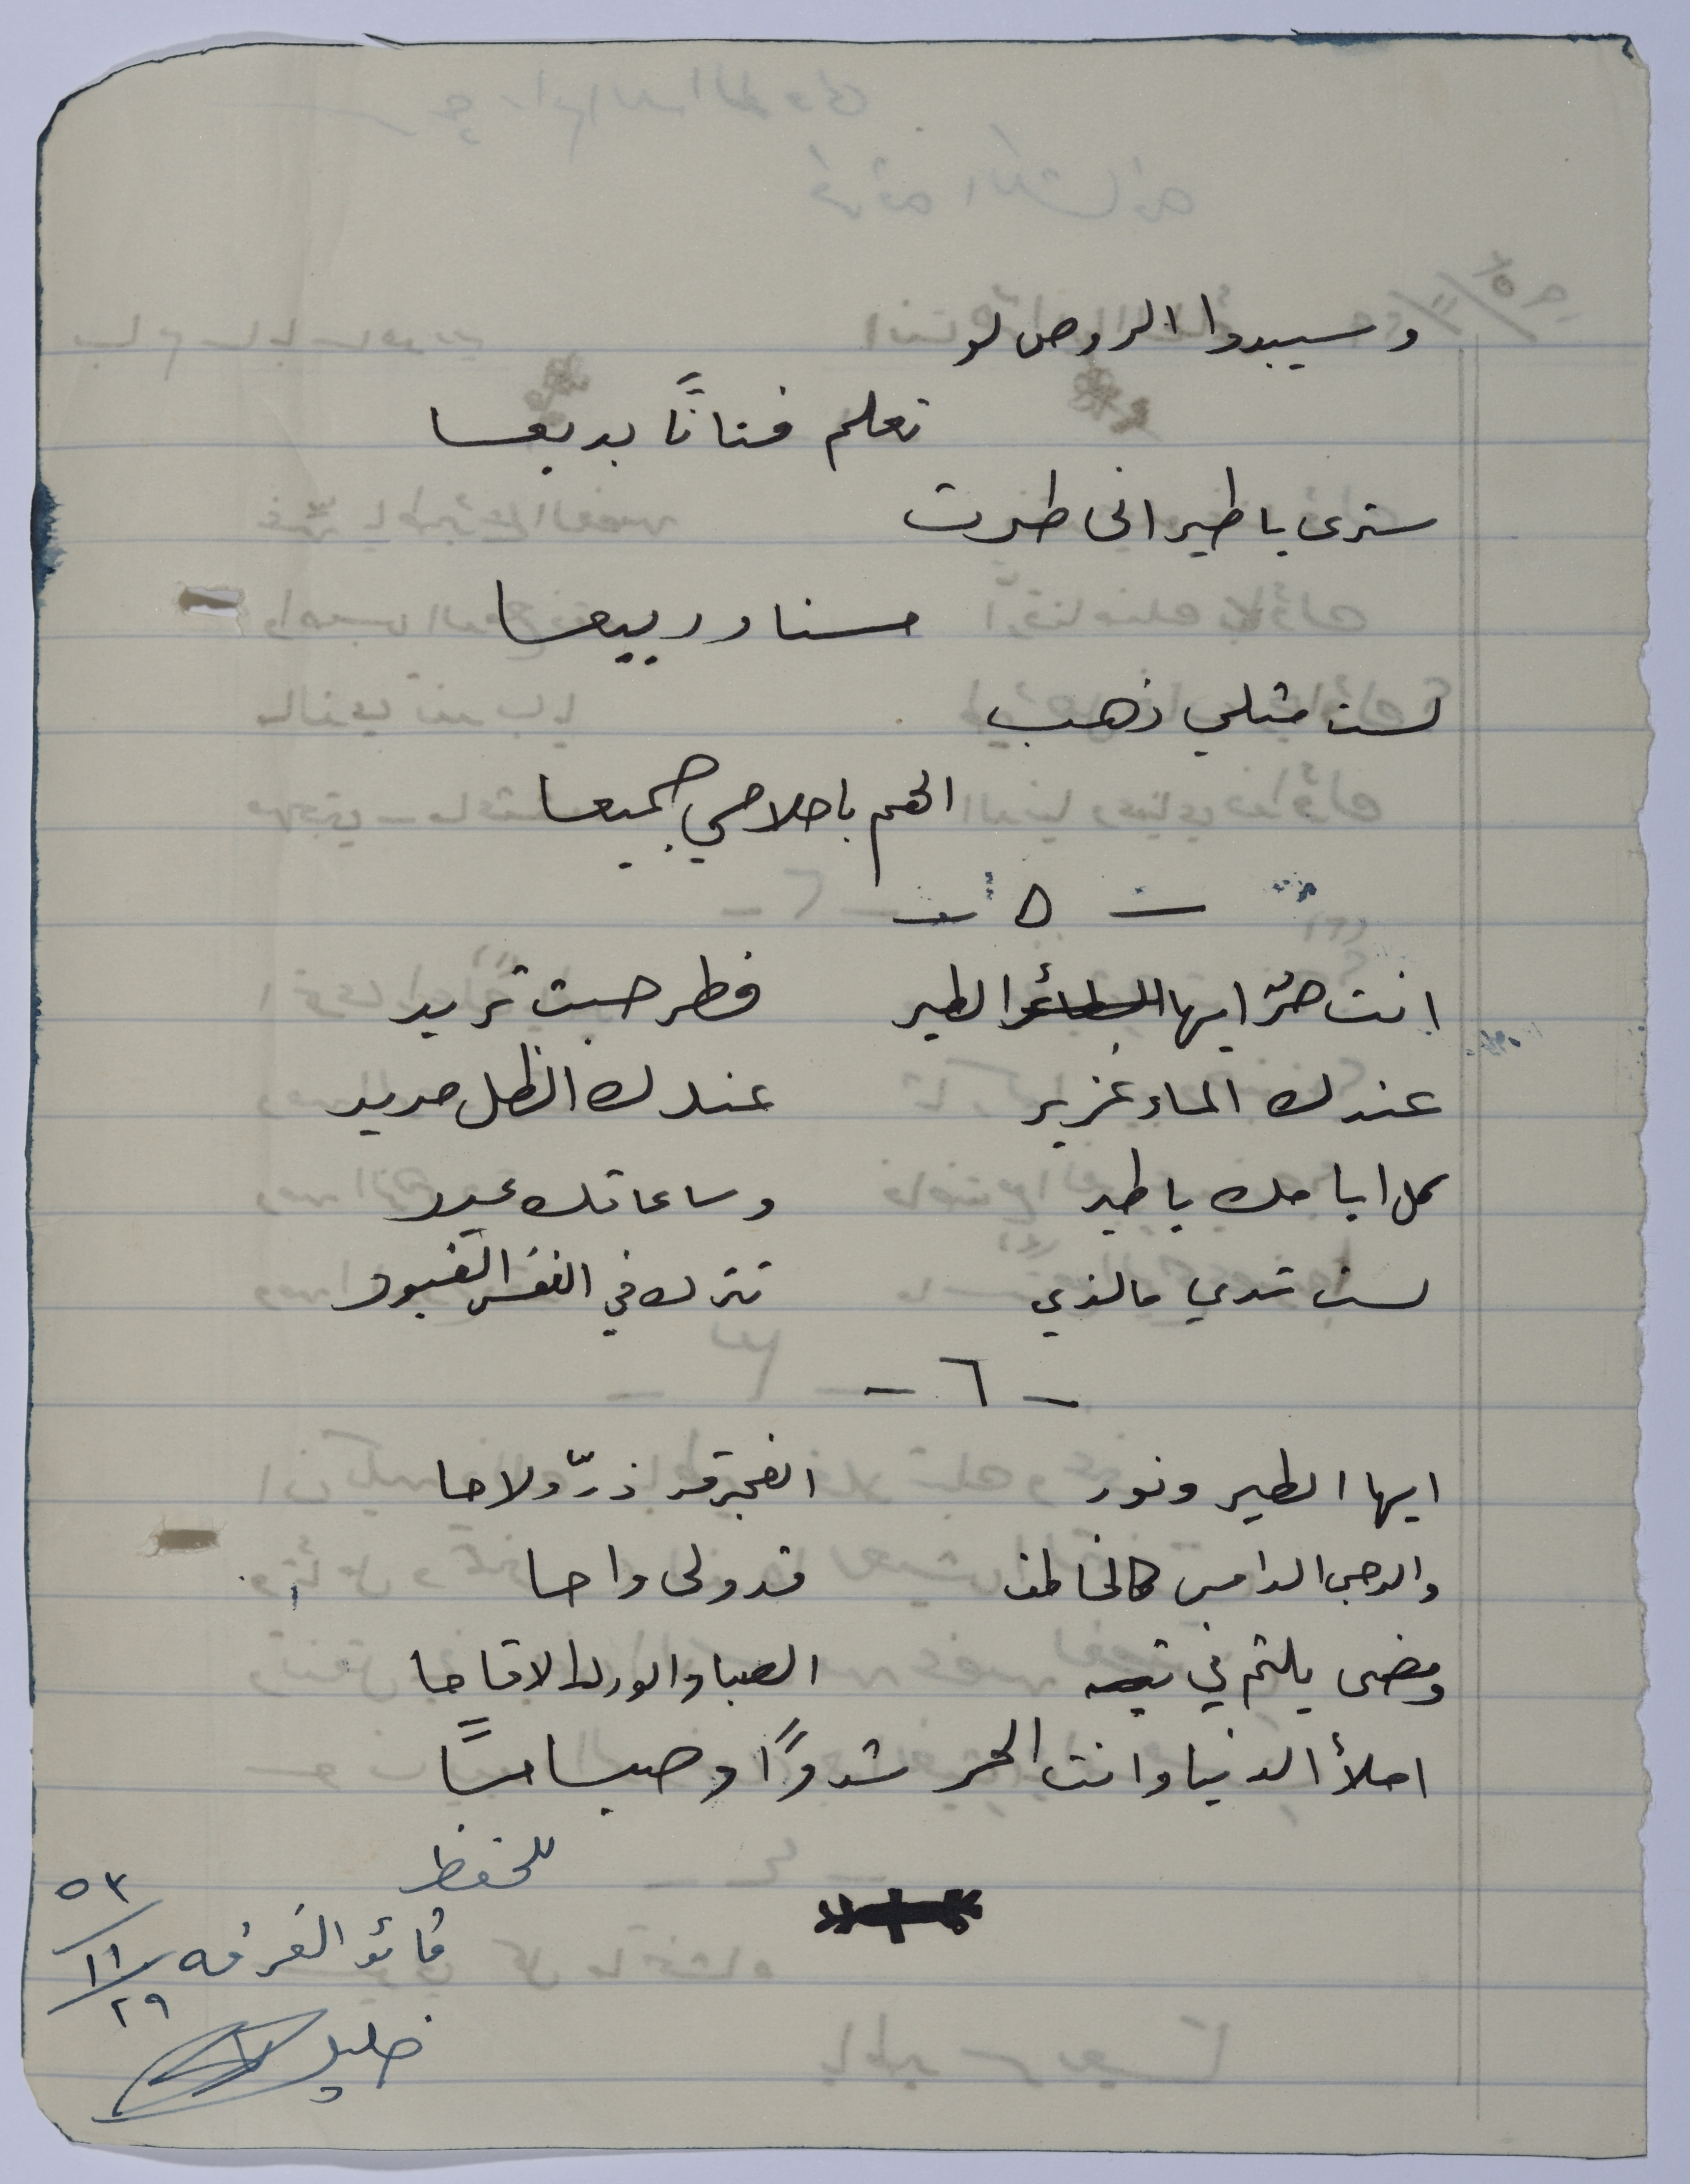 وسيبدوا الروض لو
تعلم فنانًا بديعا
سترى يا طير انى طرت
حسنا وربيعا
لست مثلي ذهب
الهم باحلامي جميعا
- ٥ -
انت حرٌ ايها الطائر الطير فطر حيث تريد
عندك الماء غزير عندك الظل مديد
كل ايامك يا طير وساعاتك عيد
لست تدري مالذي تترك في النفس القيود
- ٦ -
ايها الطير ونور الفجر قد ذرّ ولاحا
والدجى الدامس كالخاطف قد ولى واحا
ومضى يلثم في تيه الصبا والورد الاقاحا
املأ الدنيا وانت الحر شدوًا وصباحًا
للحفظ
قائد الفرقه
٥٣/١١/٢٩